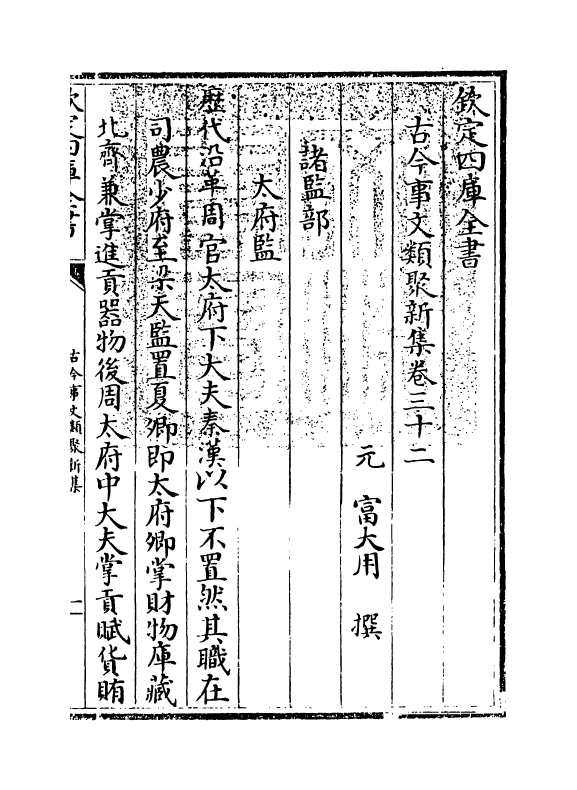 欽定四庫全書
古今事文類聚新集卷三十二
元 富大用 撰
諸監部
太府監
歷代沿革周官太府下大夫秦漢以下不置然其職在
司農少府至梁天監置夏卿即太府卿掌財物庫藏
北齊兼掌進貢器物後周太府中大夫掌貢賦貨賄
欽定四庫全書
古今事文類聚新集